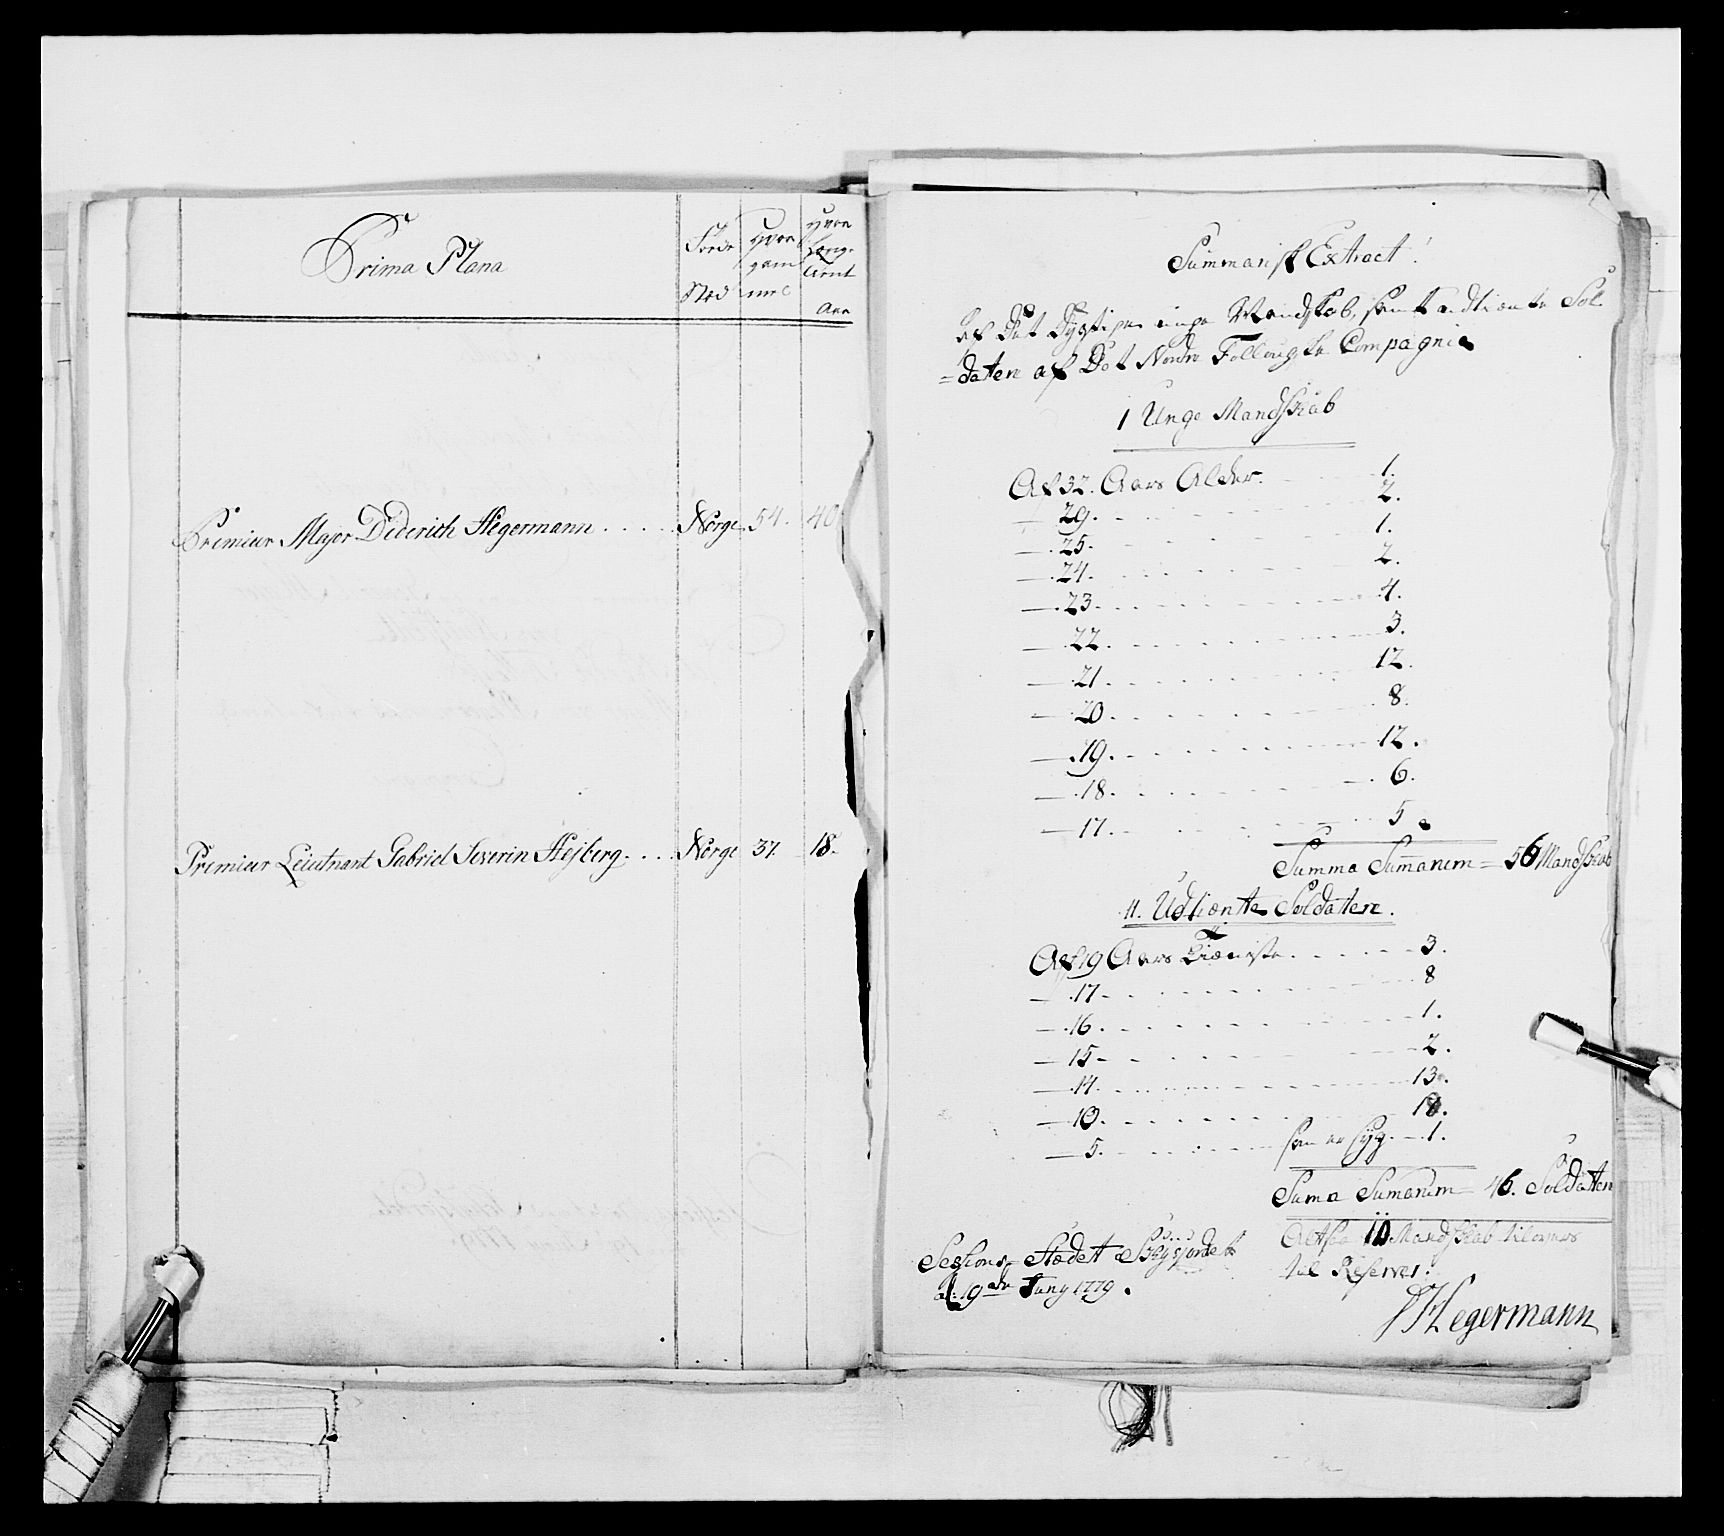 Prima Plana
Føde Sted
Hvor gammel
Hvor Længe tient Aar
Premier Major Diderich Hegermann . . . . . Norge 54. 40
Premier Lieutnant Gabriel Severin Hejberg. . . . Norge 37. 18.
Summarisk Extract!
af Det Dygtige unge Mandskab, samt udtiente Sol
=daten af Det Nordre Follougske Compagnie
1 Unge Mandskab
Af 32. Aars Alder. 1.
29. 2.
25. 1.
24. 2.
23. 4.
22. 3.
21. 12.
20. 8.
19. 12.
18. 6.
17. 5
Summa Sumarum = 56 Mandskab
11. Udtiente Soldaten.
Af 19 Aars Tieniste 3.
17 8
16. 1.
15 2.
14. 13.
10. 18.
5. som er syg. 1.
Suma Sumarum 46. Soldaten
Altsaa 10 Mandskab tilovers
til Reserver.
Sessions Stædet Skysjordet
d: 19de Juny 1779.
DHegermann